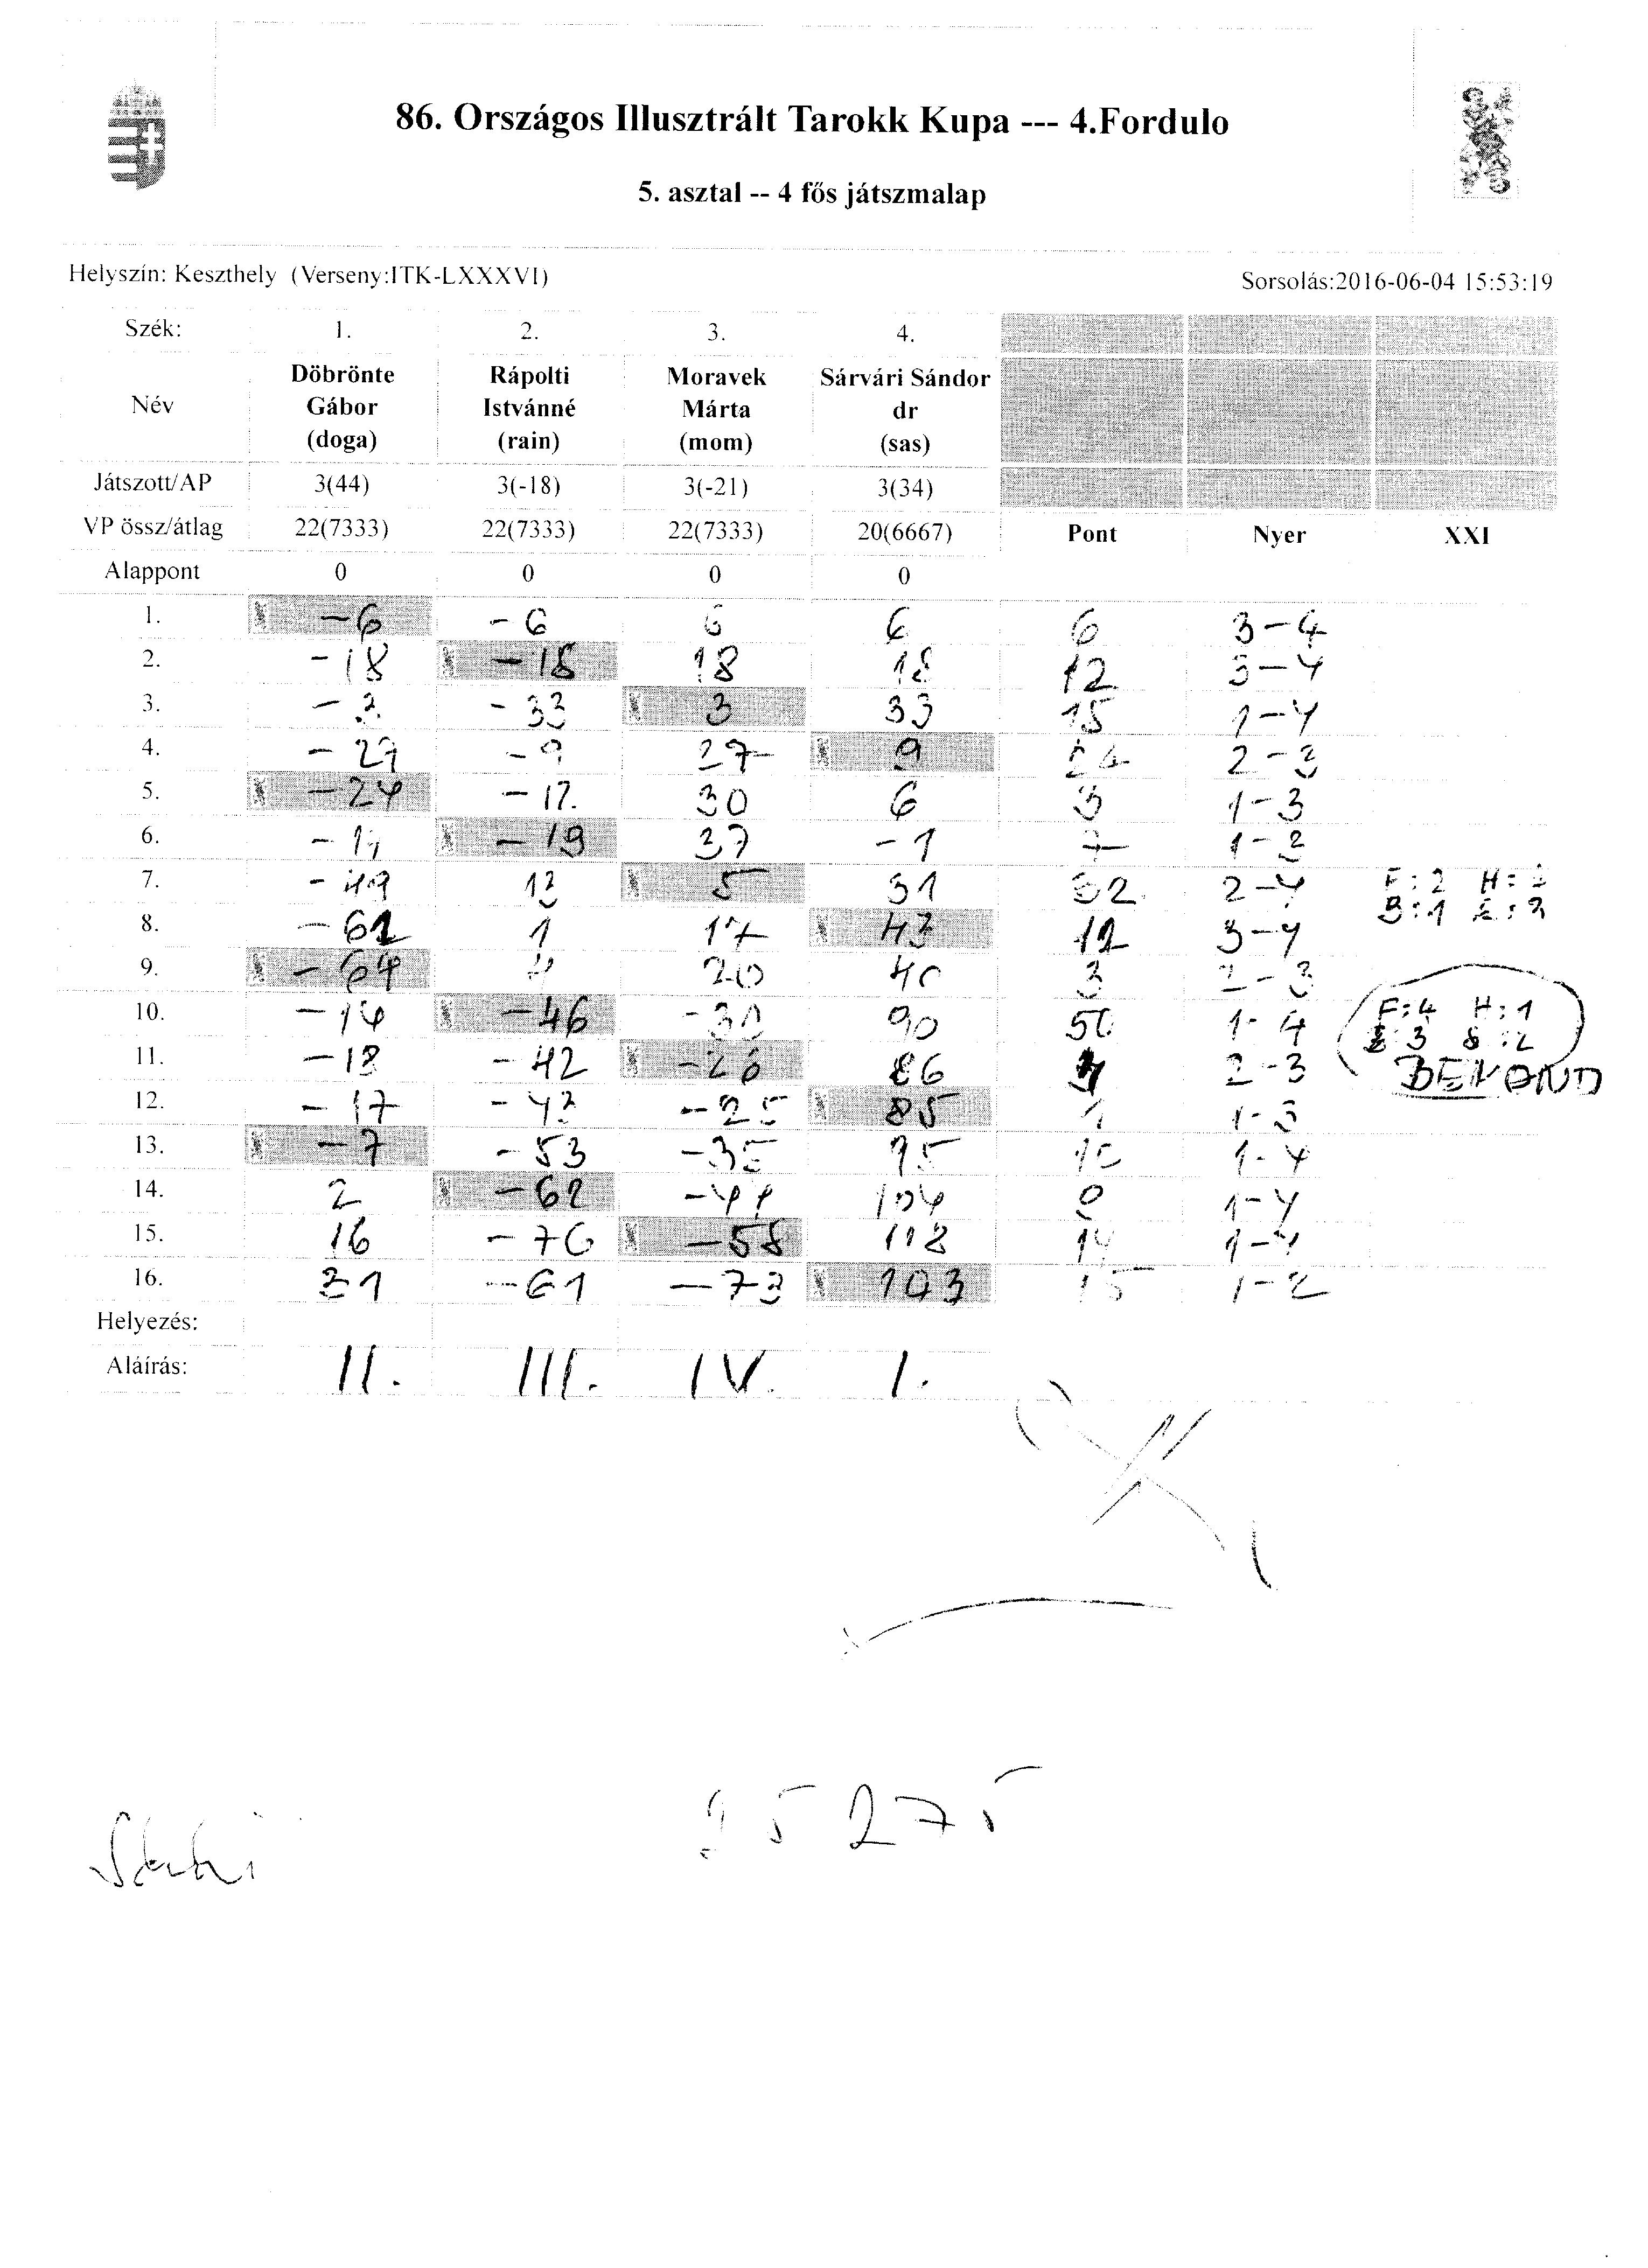 86. Országos Illusztrált Tarokk Kupa --- 4.Fordulo
5. asztal -- 4 fős játszmalap
Helyszín: Keszthely (Verseny:ITK-LXXXVI) Sorsolás:2016-06-04 15:53:19
Szék: 1. 2. 3. 4.
Név Döbrönte Gábor (doga) Rápolti Istvánné (rain) Moravek Márta (mom) Sárvári Sándor dr (sas)
Játszott/AP 3(44) 3(-18) 3(-21) 3(34)
VP össz/átlag 22(7333) 22(7333) 22(7333) 20(6667) Pont Nyer XXI
Alappont 0 0 0 0
1. -6 -6 6 6 6 3-4
2. -18 -18 18 18 12 3-4
3. -3 -33 3 33 15 1-4
4. -27 -9 27 9 24 2-3
5. -24 -12 30 6 3 1-3
6. -17 -19 37 -1 7 1-2
7. -49 13 5 31 32 2-4 F:2 H:
B:1
8. -61 1 17 43 12 3-4
9. -64 4 20 40 3 2-3
10. -14 -46 -30 90 50 1-4 F:4 H:1
:3 :2
11. -18 -42 -26 86 4 2-3 BEMOND
12. -17 -43 -25 85 1 1-3
13. -7 -53 -35 95 10 1-4
14. 2 -62 -44 104 9 1-4
15. 16 -76 -58 118 14 1-4
16. 31 -61 -73 103 15 1-2
Helyezés:
Aláírás: II. III. IV. I.